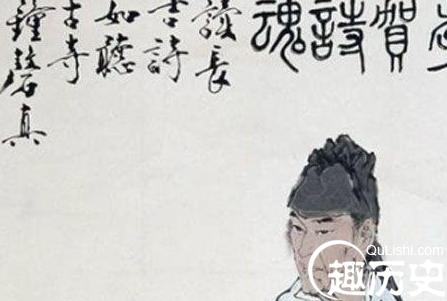 賀詩魂
讀長
吉詩
如聽
古寺
鐘磬真
QuLishi.com
趣历史